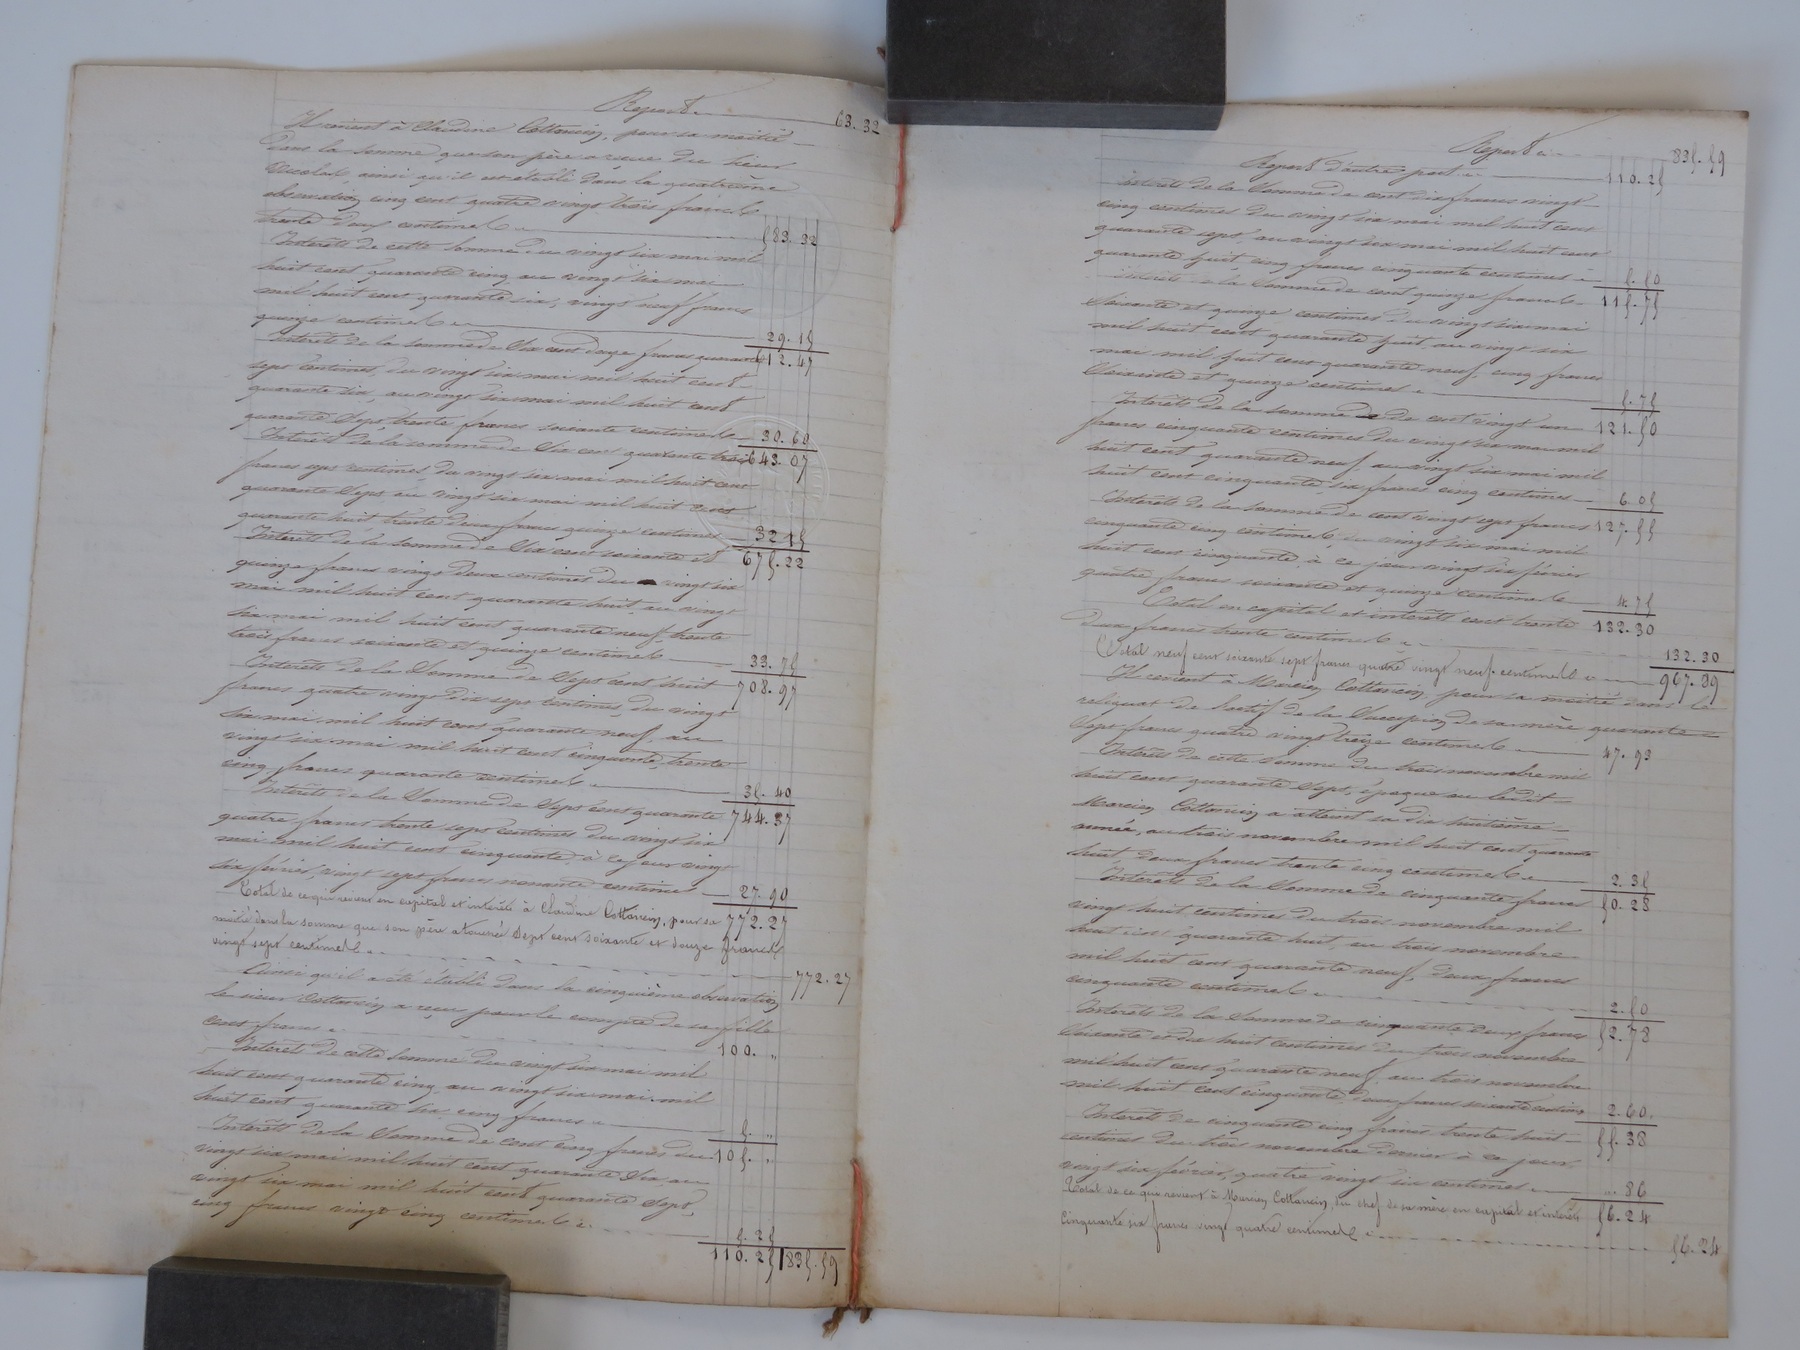 Report 63.32
Il revient à Claudine Cottancin, pour sa moitié
dans la somme que son père a reçue du sieur
Nicolas, ainsi qu'il est établi dans la quatrième
observation cinq cent quatre vingt trois francs
trente deux centimes 583.32
Intérêts de cette somme du vingt six mai mil
huit cent quarante cinq au vingt six mai
mil huit cent quarante six, vingt neuf francs
quinze centimes 29.15
Intérêts de la somme de Six cent douze francs quarante 612.47
sept centimes, du vingt six mai mil huit cent
quarante six, au vingt six mai mil huit cent
quarante Sept trente francs soixante centimes 30.60
Intérêts de la somme de Six cent quarante trois 643.07
francs sept centimes, du vingt six mai mil huit cent
quarante Sept au vingt six mai mil huit cent
quarante huit trente deux francs quinze centimes 32.15
Intérêts de la somme de Six cent soixante et 675.22
quinze francs vingt deux centimes du vingt six
mai mil huit cent quarante huit au vingt
six mai mil huit cent quarante neuf, trente
trois francs soixante et quinze centimes 33.75
Intérêts de la Somme de Sept cent huit 708.97
francs quatre vingt dix sept centimes, du vingt
six mai mil huit cent quarante neuf, au
vingt six mai mil huit cent cinquante, trente
cinq francs quarante centimes 35.40
Intérêts de la Somme de Sept cent quarante 744.37
quatre francs trente sept centimes du vingt six
mai mil huit cent cinquante, à ce jour vingt
six février, vingt sept francs nonante centimes 27.90
Total de ce qui revient en capital et intérêts à Claudine Cottancin, pour sa 772.27
moitié dans la somme que son père a touché Sept cent soixante et douze francs
vingt sept centimes 772.27
Ainsi qu'il a été établi dans la cinquième observation
le sieur Cottancin a reçu pour le compte de sa fille
cent francs 100. "
Intérêts de cette Somme du vingt six mai mil
huit cent quarante cinq au vingt six mai mil
huit cent quarante six, cinq francs 5. "
Intérêts de la Somme de cent cinq francs du 105. "
vingt six mai mil huit cent quarante Six au
vingt six mai mil huit cent quarante Sept,
cinq francs vingt cinq centimes 5.25
110.25 835.59
Report 835.59
Report d'autre part 110.25
Intérêts de la Somme de cent dix francs vingt
cinq centimes du vingt six mai mil huit cent
quarante sept, au vingt six mai mil huit cent
quarante huit cinq francs cinquante centimes 5.50
Intérêts de la Somme de cent quinze francs 115.75
Soixante et quinze centimes du vingt six mai
mil huit cent quarante huit, au vingt six
mai mil huit cent quarante neuf, cinq francs
Soixante et quinze centimes 5.75
Intérêts de la Somme de cent vingt un 121.50
francs cinquante centimes du vingt six mai mil
huit cent quarante neuf, au vingt six mai mil
huit cent cinquante, six francs cinq centimes 6.05
Intérêts de la Somme de cent vingt sept francs 127.55
cinquante cinq centimes, du vingt six mai mil
huit cent cinquante, à ce jour vingt six février
quatre francs soixante et quinze centimes 4.75
Total en capital et intérêts cent trente 132.30
deux francs trente centimes 132.30
Total neuf cent soixante sept francs quatre vingt neuf centimes 967.89
Il revient à Marcien Cottancin, pour sa moitié dans le
reliquat de l'actif de la Succession de sa mère quarante
Sept francs quatre vingt treize centimes 47.93
Intérêts de cette Somme du trois novembre mil
huit cent quarante Sept, époque où ledit
Marcien Cottancin a atteint sa dix huitième
année, au trois novembre mil huit cent quarante
huit, deux francs trente cinq centimes 2.35
Intérêts de la Somme de cinquante francs 50.28
vingt huit centimes du trois novembre mil
huit cent quarante huit, au trois novembre
mil huit cent quarante neuf, deux francs
cinquante centimes 2.50
Intérêts de la Somme de cinquante deux francs 52.78
Soixante et dix huit centimes du trois novembre
mil huit cent quarante neuf, au trois novembre
mil huit cent cinquante deux francs soixante centimes 2.60.
Intérêts de cinquante cinq francs trente huit 55.38
centimes du trois novembre dernier à ce jour
vingt six février, quatre vingt six centimes ". 86
Total de ce qui revient à Marcien Cottancin, du chef de sa mère en capital et intérêts 56.24
Cinquante six francs vingt quatre centimes 56.24